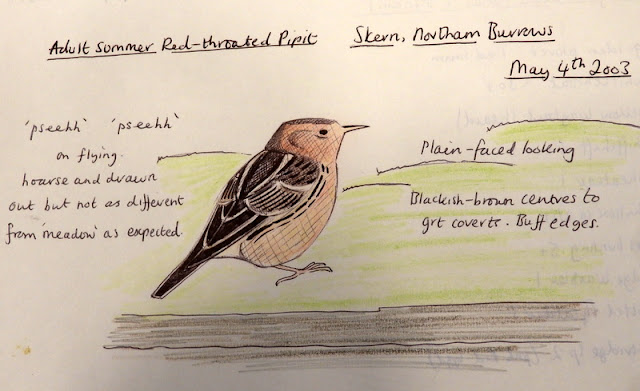 Adult Summer Red-throated Pipit
Skern, Northam Burrows
May 4th 2003
'pseehh' 'pseehh'
on flying.
hoarse and drawn
out but not as different
from 'meadow' as expected.
Plain-faced looking
Blackish-brown centres to
grt coverts. Buff edges.